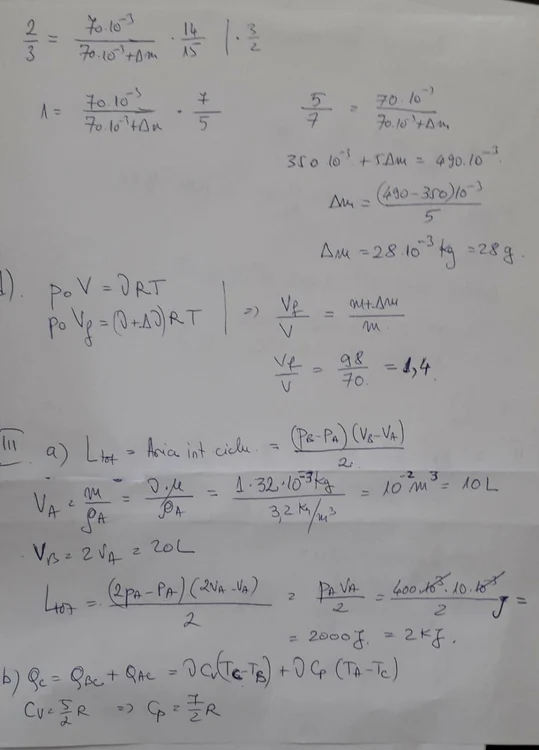 2/3 = 70·10⁻³/(70·10⁻³+Δm) · 14/15 | · 3/2
1 = 70·10⁻³/(70·10⁻³+Δm) · 7/5
5/7 = 70·10⁻³/(70·10⁻³+Δm)
350 10⁻³ + 5Δm = 490·10⁻³
Δm = (490-350)10⁻³/5
Δm = 28·10⁻³ kg = 28 g.
d). p₀V = νRT
p₀V_f = (ν+Δν)RT | => V_f/V = (m+Δm)/m
V_f/V = 98/70 = 1,4.
III a) L_tot = Aria int ciclu. = (p_B-p_A)(V_B-V_A)/2
V_A = m/ρ_A = ν·μ/ρ_A = 1·32·10⁻³kg/3,2 kg/m³ = 10⁻² m³ = 10 L
V_B = 2V_A = 20L
L_tot = (2p_A-p_A)(2V_A-V_A)/2 = p_A V_A/2 = 400·10³·10·10⁻³/2 J =
= 2000 J. = 2 kJ.
b) Q_C = Q_BC + Q_AC = νC_V(T_C-T_B) + νC_p(T_A-T_C)
C_V = 5/2 R => C_p = 7/2 R